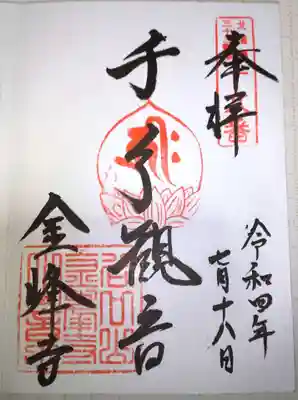 奉拝
令和四年
七月十八日
手引觀音
金峰寺